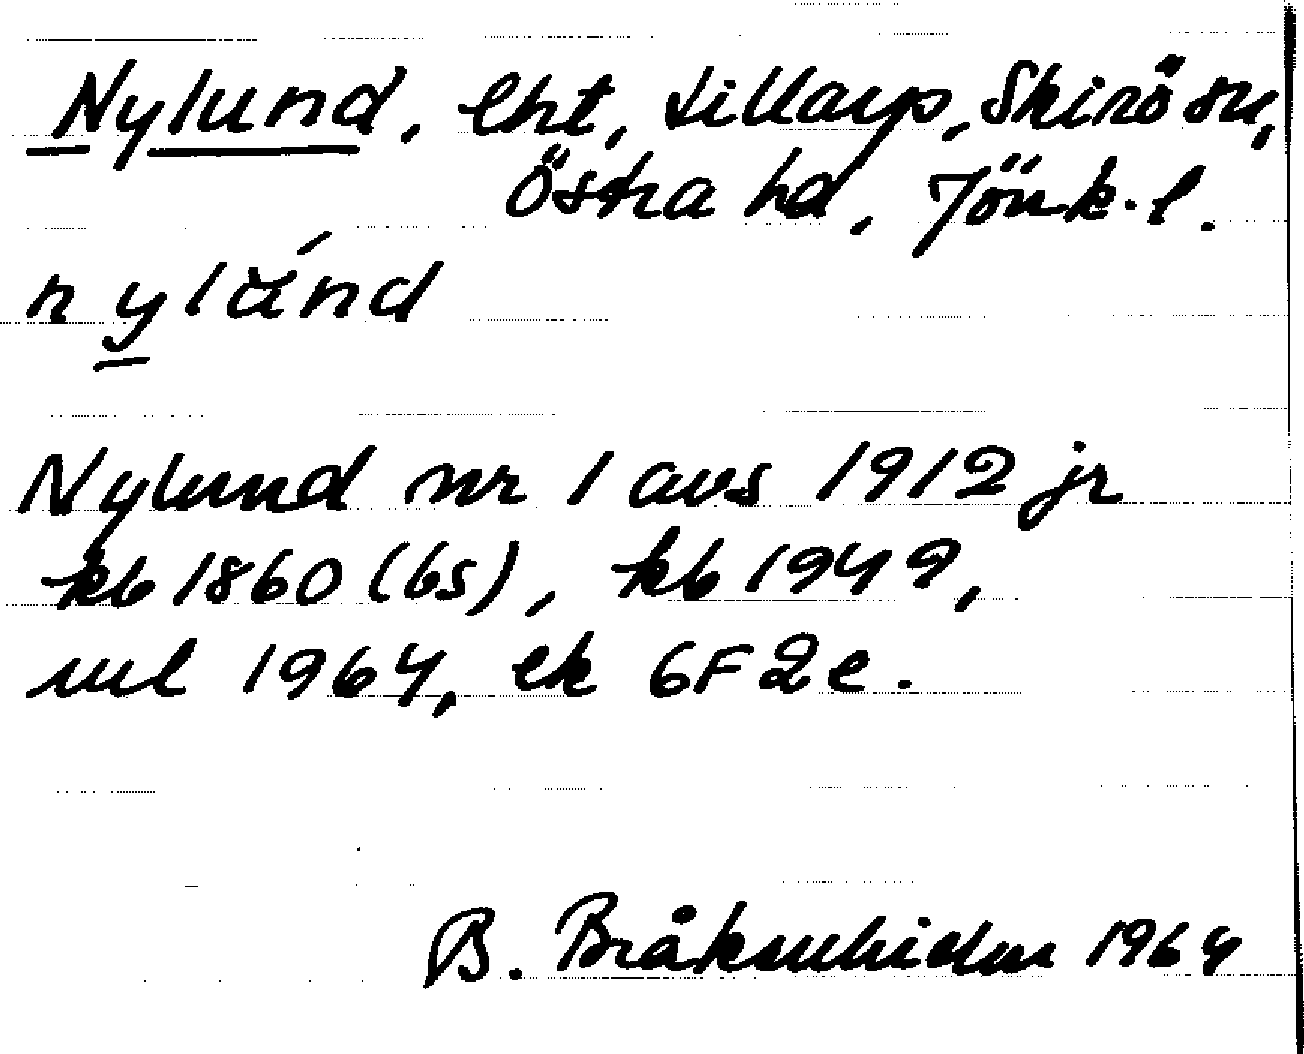 Nylund, lht, Lillarp, Skirö sn,
Östra hd, Jönk. l.
nylúnd
Nylund nr 1 avs 1912 jr
kb 1860 (bs), kb 1949,
ml 1964, ek 6F2e.
B. 1964